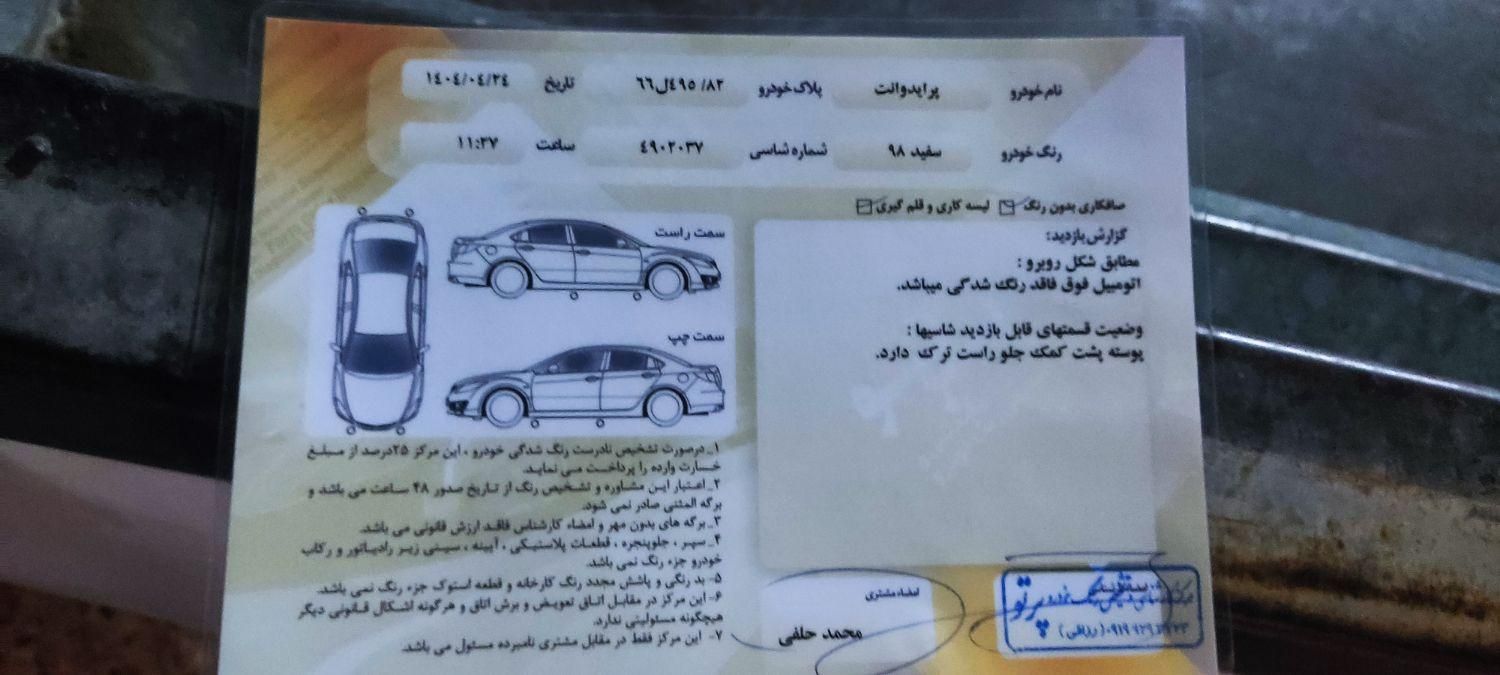 نام خودرو پرایدوانت پلاک خودرو ۸۲/ ۴۹۵ل۶۶ تاریخ ۱۴۰۴/۰۴/۲۴
رنگ خودرو سفید ۹۸ شماره شاسی ۴۹۰۲۰۳۷ ساعت ۱۱:۲۷
صافکاری بدون رنگ لیسه کاری و قلم گیری
گزارش بازدید:
مطابق شکل روبرو :
اتومبیل فوق فاقد رنگ شدگی میباشد.
وضعیت قسمتهای قابل بازدید شاسیها :
پوسته پشت کمک جلو راست ترک دارد.
سمت راست
سمت چپ
۱_درصورت تشخیص نادرست رنگ شدگی خودرو ، این مرکز ۲۵درصد از مبلغ
خسارت وارده را پرداخت می نماید.
۲_اعتبار این مشاوره و تشخیص رنگ از تاریخ صدور ۴۸ ساعت می باشد و
برگه المثنی صادر نمی شود.
۳_برگه های بدون مهر و امضاء کارشناس فاقد ارزش قانونی می باشد.
۴_ سپر ، جلوپنجره ، قطعات پلاستیکی ، آیینه ، سینی زیر رادیاتور و رکاب
خودرو جزء رنگ نمی باشد.
۵- بد رنگی و پاشش مجدد رنگ کارخانه و قطعه استوک جزء رنگ نمی باشد.
۶- این مرکز در مقابل اتاق تعویض و برش اتاق و هرگونه اشکال قانونی دیگر
هیچگونه مسئولیتی ندارد.
۷- این مرکز فقط در مقابل مشتری نامبرده مسئول می باشد.
امضاء مشتری
محمد حلفی
پرتو
(رزاقی)